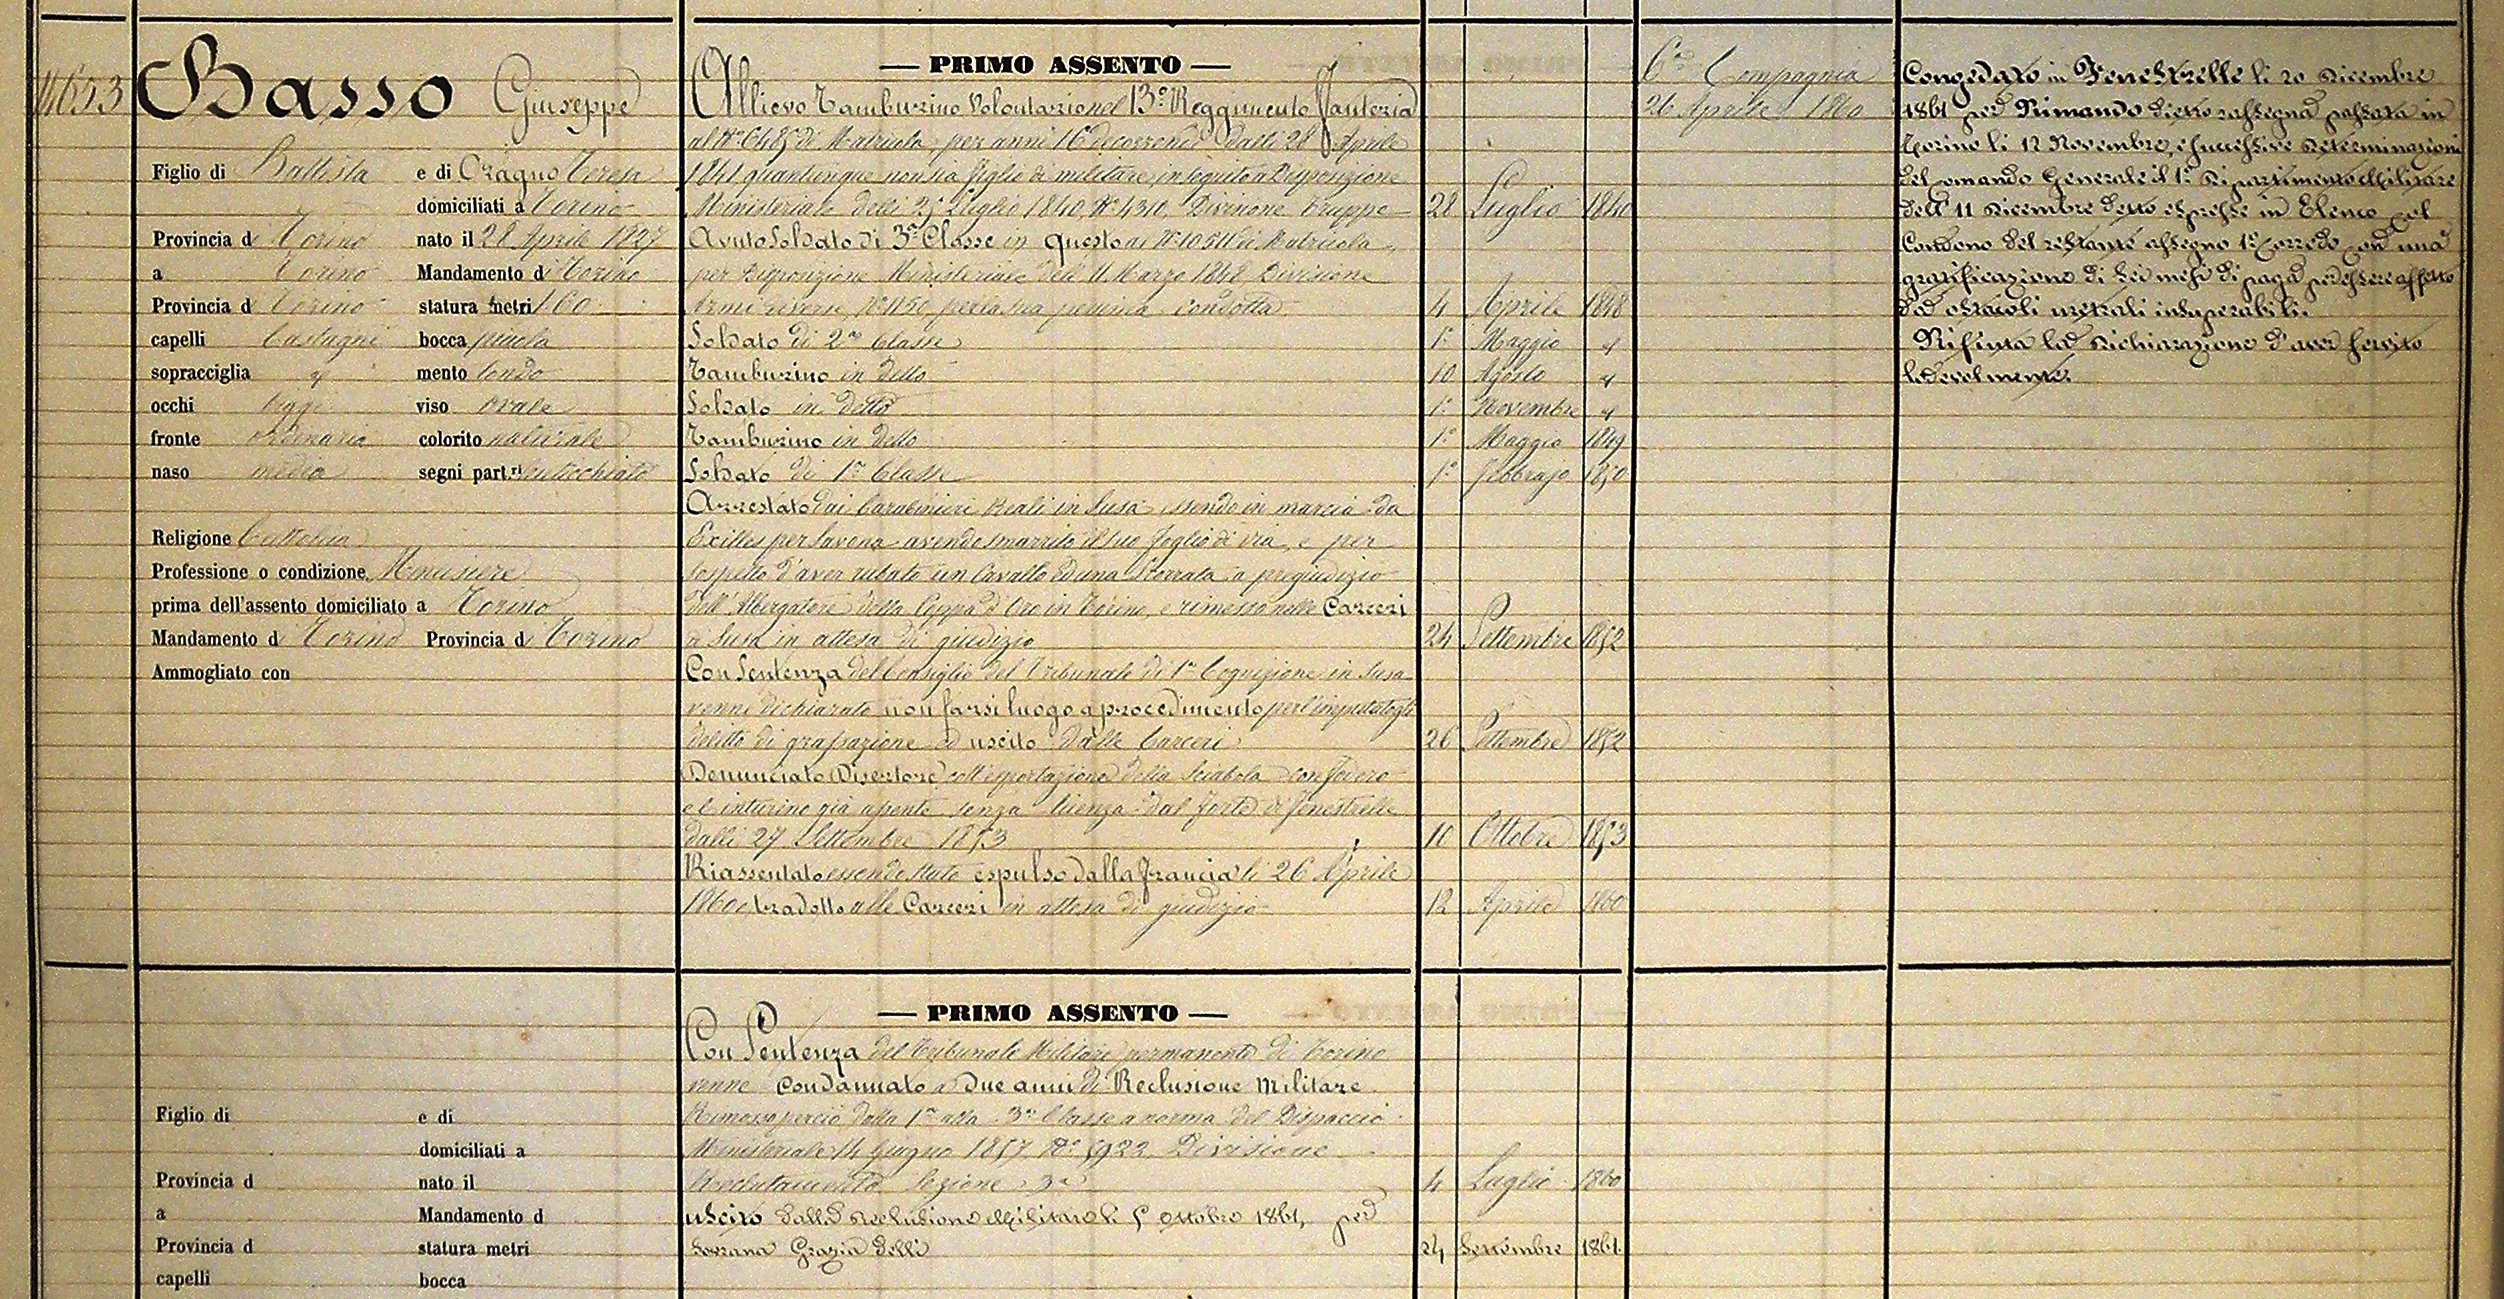 14653
Basso Giuseppe
Figlio di Battista e di Oragno Teresa
domiciliati a Torino
Provincia di Torino nato il 28 Aprile 1827
a Torino Mandamento di Torino
Provincia di Torino statura metri 1.60
capelli Castagni bocca piccola
sopracciglia id mento tondo
occhi bigi viso ovale
fronte ordinaria colorito naturale
naso medio segni part.ri
Religione Cattolica
Professione o condizione Minusiere
prima dell'assento domiciliato a Torino
Mandamento di Torino Provincia di Torino
Ammogliato con
— PRIMO ASSENTO —
Allievo Tamburino Volontario nel 13° Reggimento Fanteria
al N° 6485 di Matricola, per anni 16 decorrendi dalli 28 Aprile
1841 quantunque non sia figlio di militare, in seguito a Disposizione
Ministeriale delli 25 Luglio 1840, N° 4310, Divisione Truppe 28 Luglio 1840
Avuto Soldato di 3a Classe in questo al N° 10511 di Matricola
per Disposizione Ministeriale dell' 11 Marzo 1848, Divisione
Armi diverse, N° 1150, per la sua pessima condotta 4 Aprile 1848
Soldato di 2a Classe 1° Maggio id
Tamburino in detto 10 Agosto id
Soldato in detto 1° Novembre id
Tamburino in detto 1° Maggio 1849
Soldato di 1a Classe 1° Febbrajo 1850
Arrestato dai Carabinieri Reali in Susa essendo in marcia da
Exilles per Savona avendo smarrito il suo foglio di via, e per
sospetto d'aver rubato un Cavallo ed una a pregiudizio
dell'Albergatore della Coppa d'Oro in Torino, e rimesso nelle Carceri
a Susa in attesa di giudizio 24 Settembre 1852
Con Sentenza del Consiglio del Tribunale di 1a Cognizione in Susa
venne dichiarato non farsi luogo a procedimento per l'imputatogli
delitto di grassazione ed uscito dalle Carceri 26 Settembre 1852
Denunciato Disertore coll'esportazione della Sciabola con fodero
e cinturino già assente senza licenza dal forte di Fenestrelle
dalli 27 Settembre 1853 10 Ottobre 1853
Riassentato essendo stato espulso dalla Francia li 26 Aprile
1860 e tradotto alle Carceri in attesa di giudizio 12 Aprile 1860
6a Compagnia
26 Aprile 1860
Congedato in Fenestrelle li 20 Dicembre
1861 per Rimando dietro rassegna passata in
Torino li 12 Novembre, e successive Determinazioni
del Comando Generale il 1° Dipartimento Militare
dell' 11 Dicembre detto espresse in Elenco col
Condono del restante assegno 1° Corredo con una
gratificazione di sei mesi di paga per essere affetto
da ostacoli uretrali insuperabili.
Rifiuta la dichiarazione d'aver servito
lodevolmente.
— PRIMO ASSENTO —
Con Sentenza del Tribunale Militare permanente di Torino
venne Condannato a due anni di Reclusione Militare.
Rimosso perciò dalla 1a alla 3a Classe a norma del Dispaccio
Ministeriale 14 Giugno 1857 N° 5922 Divisione
Reclutamento Sezione 3a 4 Luglio 1860
Uscito dalla Reclusione Militare li 5 Ottobre 1861, per
Sovrana Grazia delli 24 Settembre 1861.
Figlio di e di
domiciliati a
Provincia d nato il
a Mandamento d
Provincia d statura metri
capelli bocca